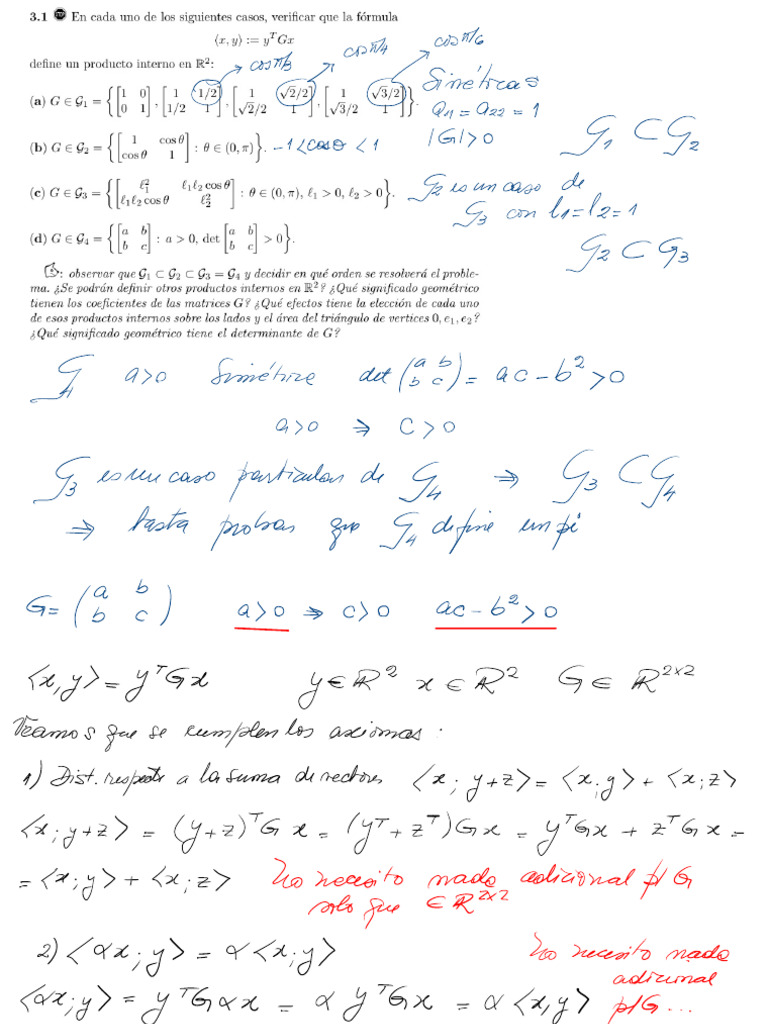 3.1 STOP En cada uno de los siguientes casos, verificar que la fórmula
⟨x, y⟩ := yᵀGx
cos π/3 cos π/4 cos π/6
define un producto interno en ℝ²:
(a) G ∈ 𝒢₁ = { [1 0; 0 1], [1 1/2; 1/2 1], [1 √2/2; √2/2 1], [1 √3/2; √3/2 1] }.
Simétricas
a₁₁ = a₂₂ = 1
|G| > 0
𝒢₁ ⊂ 𝒢₂
(b) G ∈ 𝒢₂ = { [1 cos θ; cos θ 1] : θ ∈ (0, π) }. -1 < cos θ < 1
(c) G ∈ 𝒢₃ = { [ℓ₁² ℓ₁ℓ₂ cos θ; ℓ₁ℓ₂ cos θ ℓ₂²] : θ ∈ (0, π), ℓ₁ > 0, ℓ₂ > 0 }.
𝒢₂ es un caso de
𝒢₃ con l₁ = l₂ = 1
𝒢₂ ⊂ 𝒢₃
(d) G ∈ 𝒢₄ = { [a b; b c] : a > 0, det [a b; b c] > 0 }.
: observar que 𝒢₁ ⊂ 𝒢₂ ⊂ 𝒢₃ = 𝒢₄ y decidir en qué orden se resolverá el proble-
ma. ¿Se podrán definir otros productos internos en ℝ²? ¿Qué significado geométrico
tienen los coeficientes de las matrices G? ¿Qué efectos tiene la elección de cada uno
de esos productos internos sobre los lados y el área del triángulo de vertices 0, e₁, e₂?
¿Qué significado geométrico tiene el determinante de G?
𝒢₄ a>0 Simétrica det (a b; b c) = ac - b² > 0
a>0 ⇒ c>0
𝒢₃ es un caso particular de 𝒢₄ ⇒ 𝒢₃ ⊂ 𝒢₄
⇒ basta probar que 𝒢₄ define un pi
G = (a b; b c) a>0 ⇒ c>0 ac - b² > 0
<x,y> = yᵀGx y ∈ ℝ² x ∈ ℝ² G ∈ ℝ²ˣ²
Veamos que se cumplen los axiomas:
1) Dist. respecto a la suma de vectores <x; y+z> = <x;y> + <x;z>
<x; y+z> = (y+z)ᵀG x = (yᵀ + zᵀ)Gx = yᵀGx + zᵀGx =
= <x;y> + <x;z> No necesito nada adicional p/ G
solo que ∈ ℝ²ˣ²
2) <αx; y> = α<x;y> No necesito nada
adicional
<αx; y> = yᵀGαx = α yᵀGx = α<x,y> p/G...